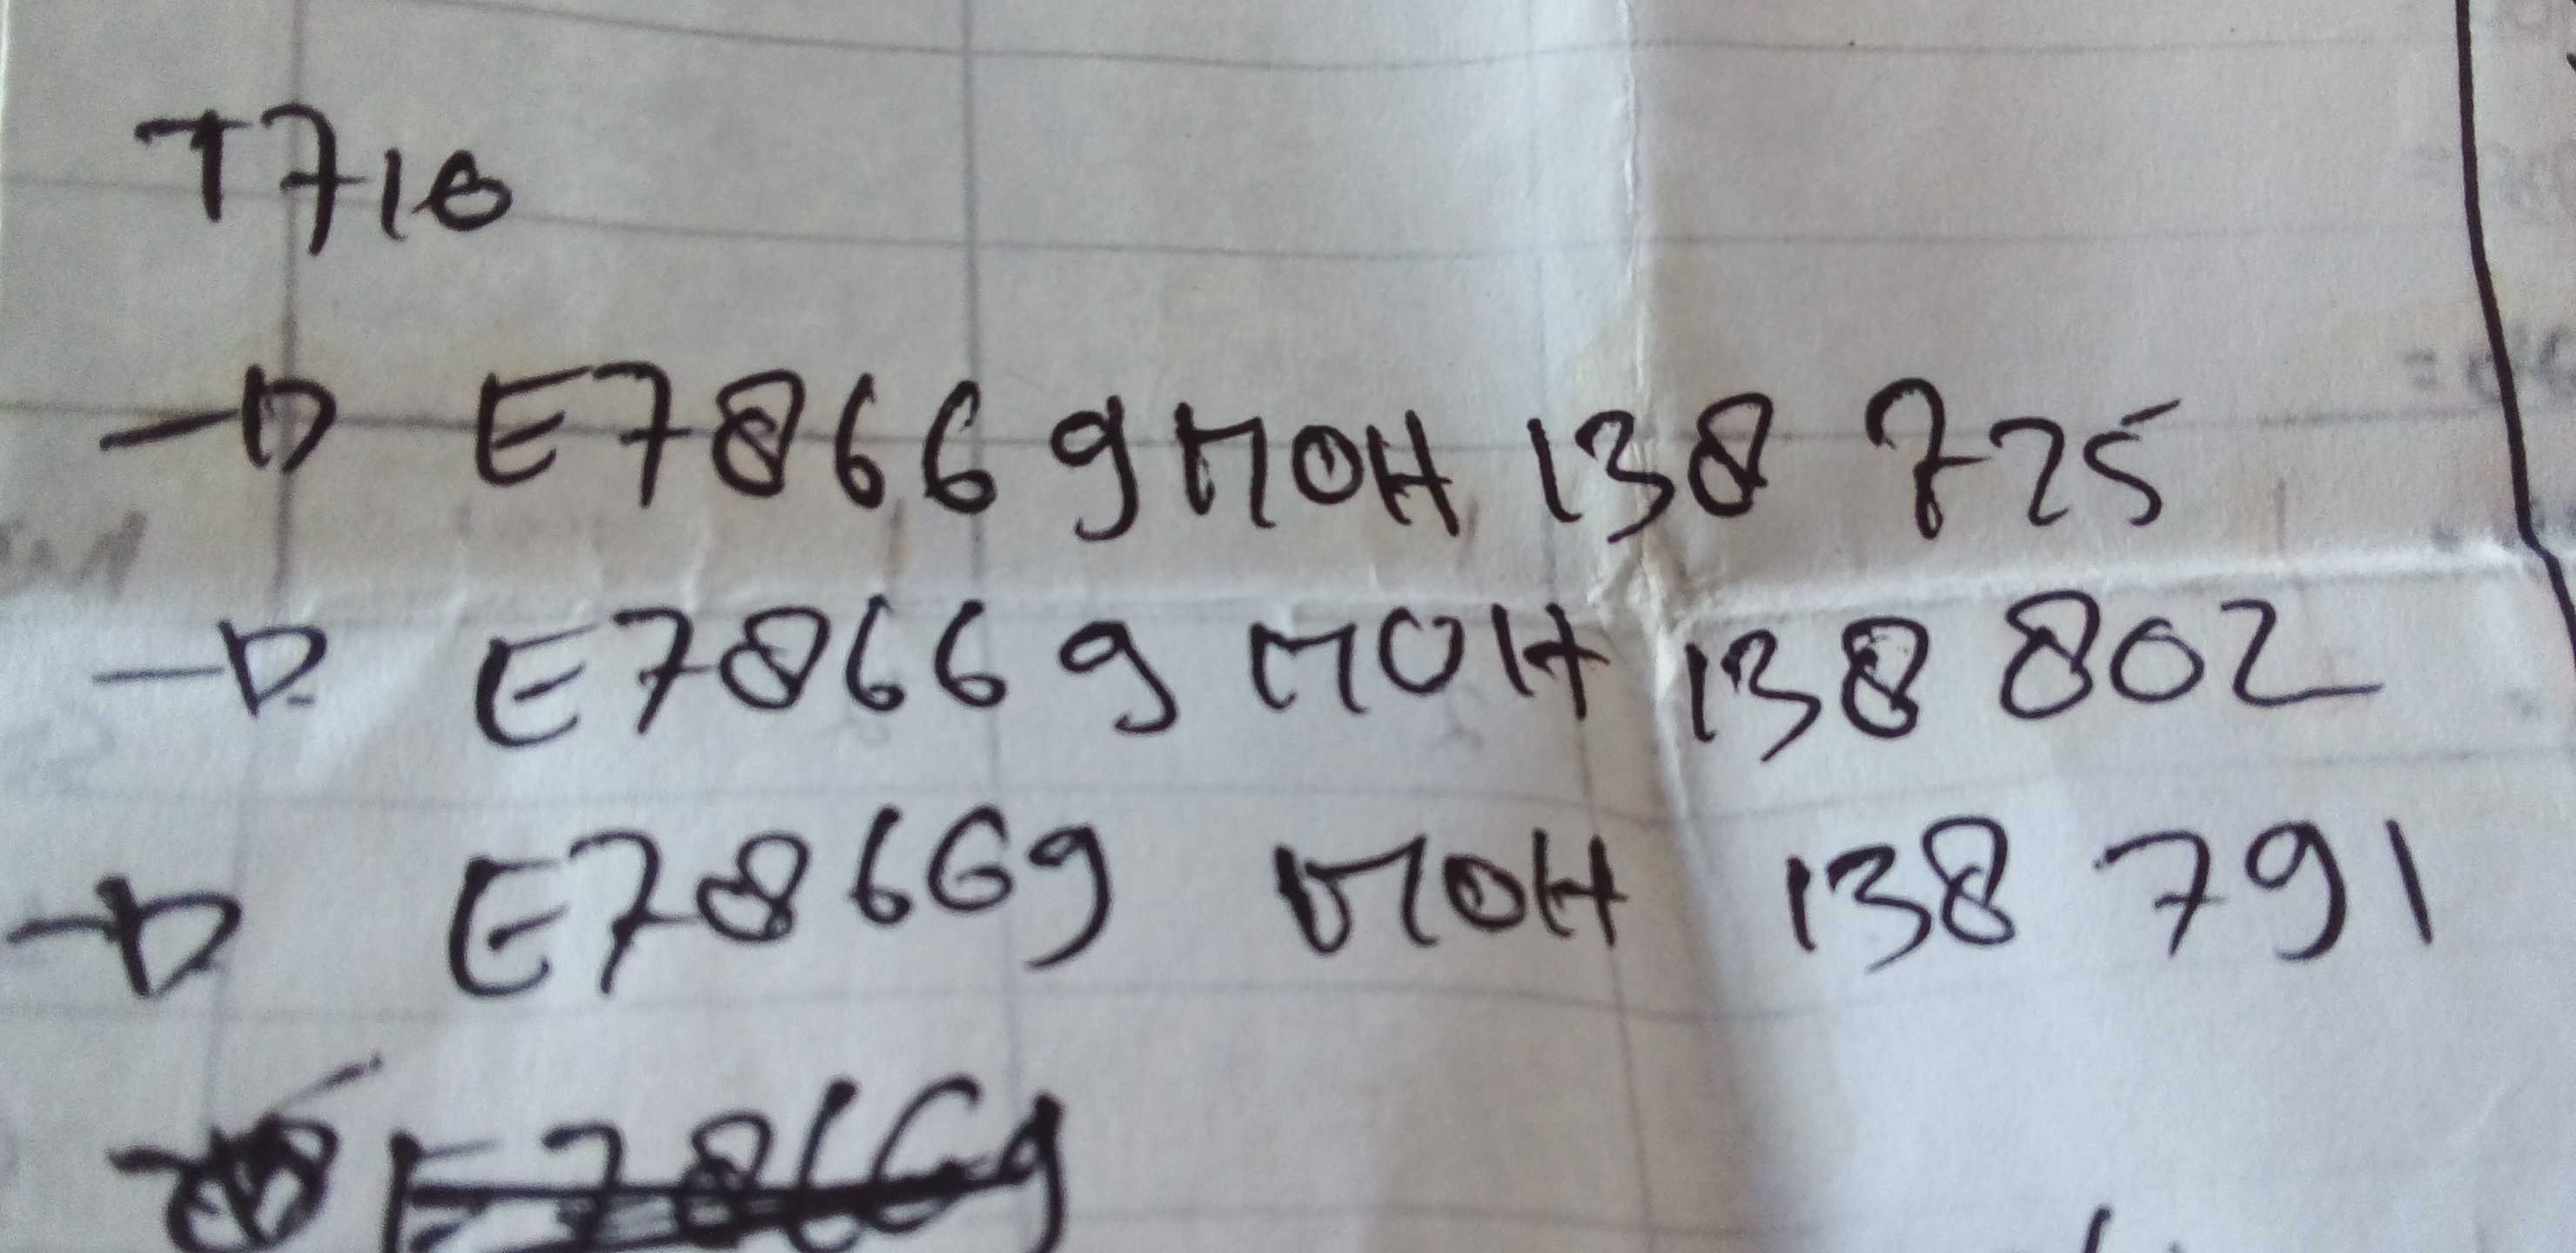 T710
→ E78669MOH 138 725
→ E78669 MOH 138 802
→ E78669 MOH 138 791
E78669